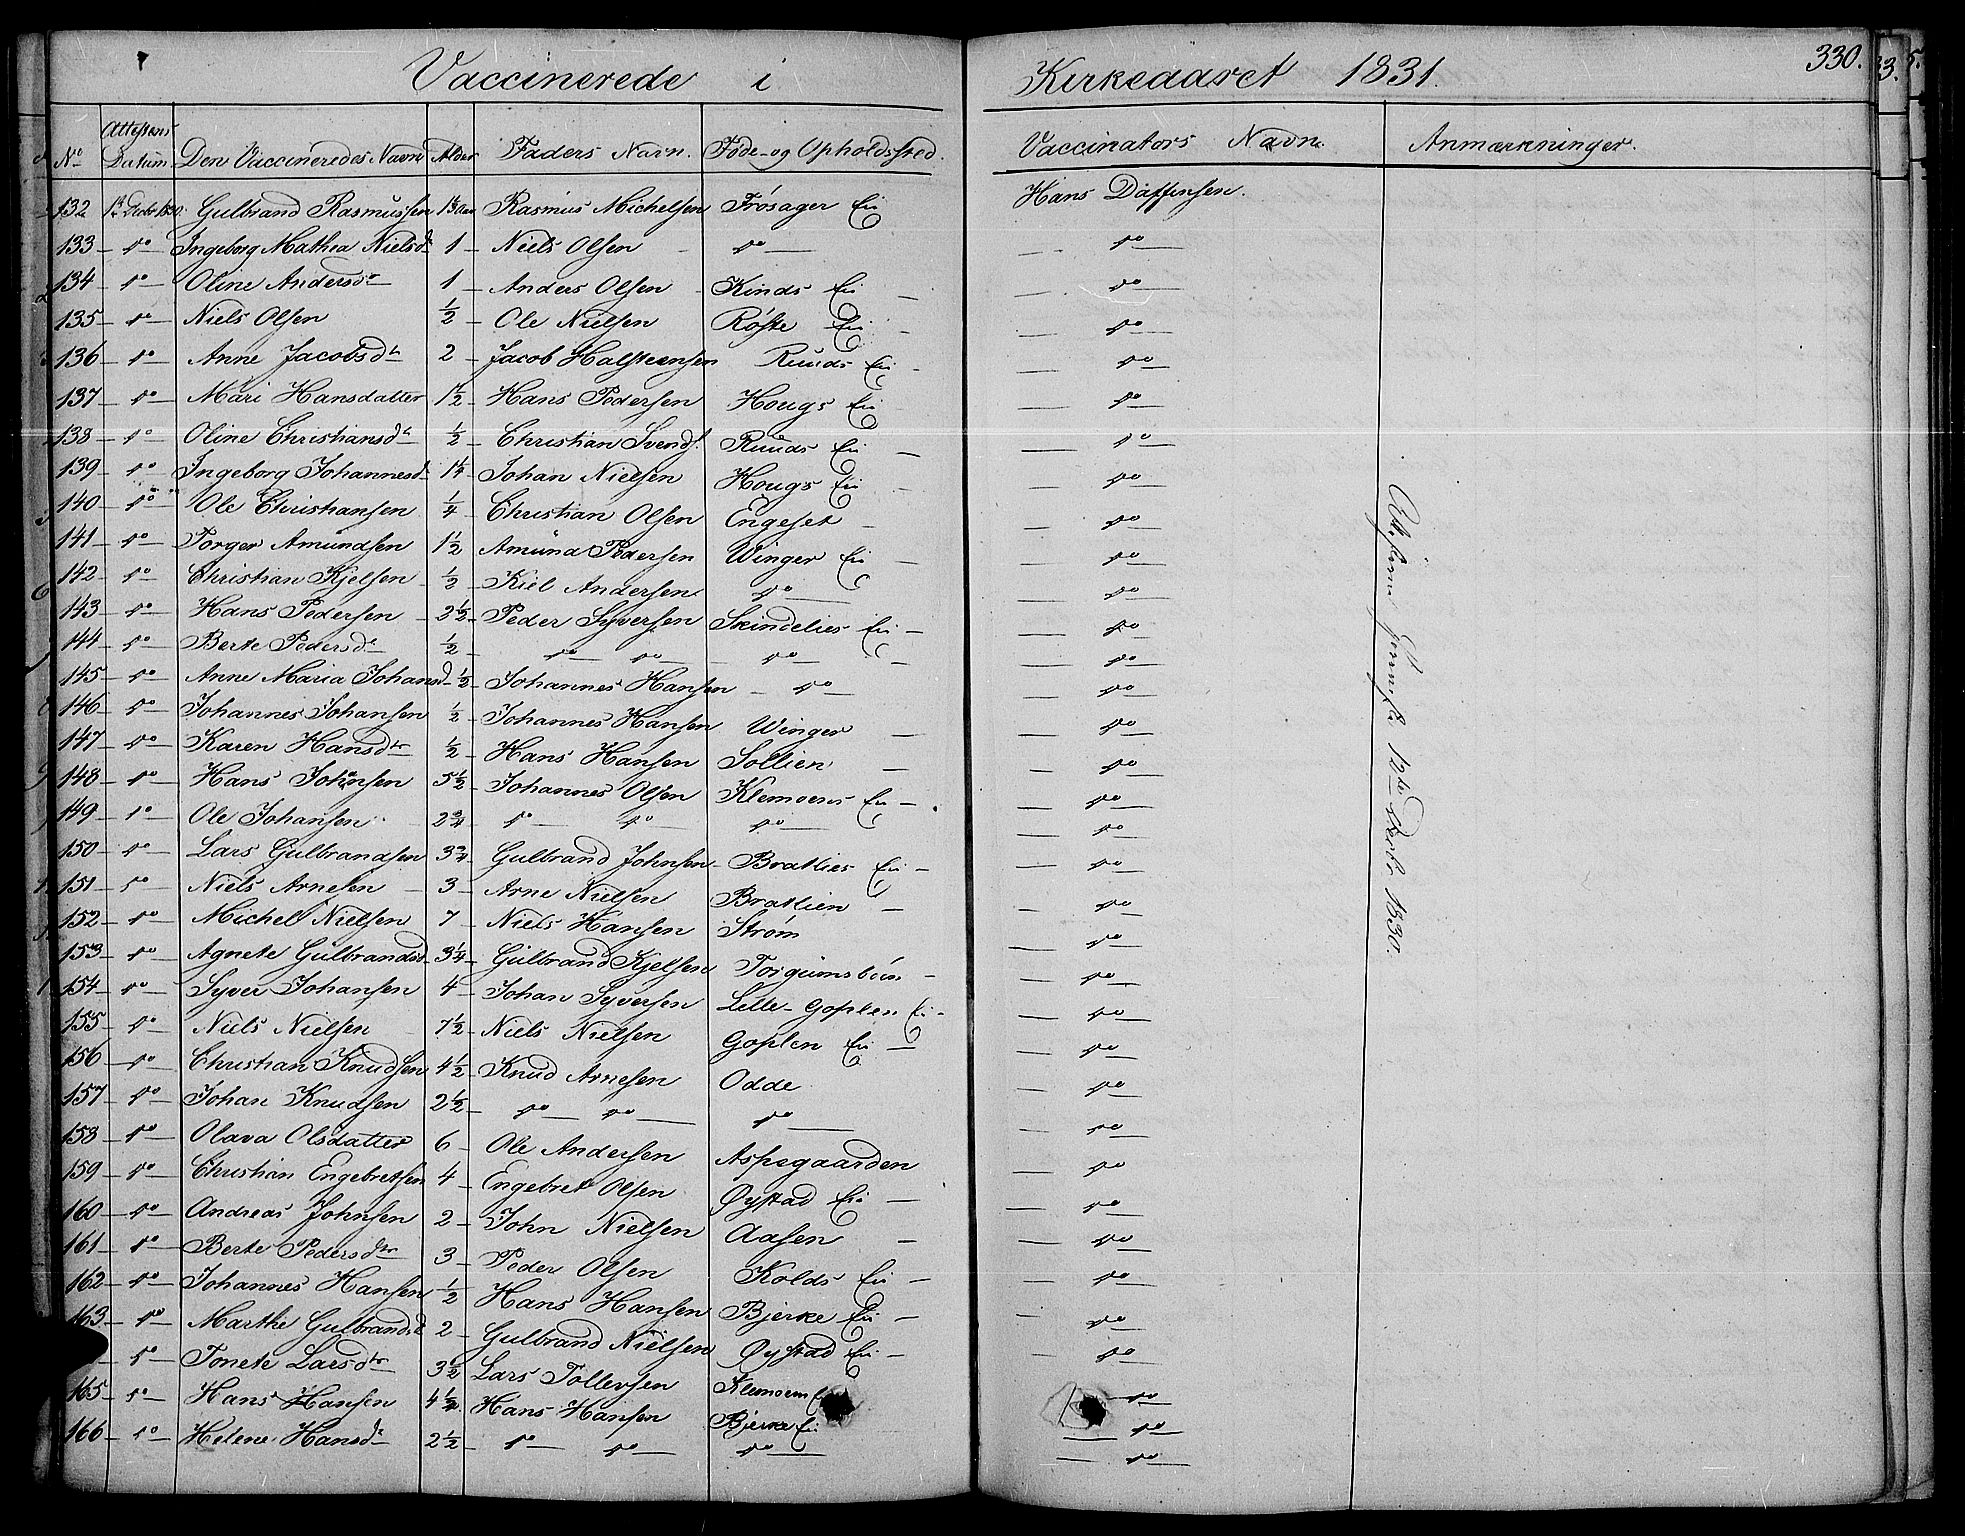 Vaccinerede i Kirkeaaret 1831. 330.
No Attestens Datum. Den Vaccineredes Navn Alder Faders Navn. Føde- og Opholdssted. Vaccinators Navn. Anmærkninger.
132 Gulbrand Rasmussen Rasmus Michelsen Frøsager Ei Hans Daffinsen.
133 do Ingeborg Mathea Nielsdr 1 Niels Olsen do do
134 do Oline Andersdr 1 Anders Olsen Kinds Ei do
135 do Niels Olsen ½ Ole Nielsen Røste Ei do
136 do Anne Jacobsdr 2 Jacob Halsteensen Ruuds Ei do
137 do Mari Hansdatter 1½ Hans Pedersen Hougs Ei do
138 do Oline Christiansdr ½ Christian Svends. Ruuds Ei do
139 do Ingeborg Johannesd 1¼ Johan Nielsen Hougs Ei do
140 do Ole Christiansen ¼ Christian Olsen Engeset do
141 do Torger Amundsen 1½ Amund Pedersen Winger Ei do
142 do Christian Kjelsen ½ Kiel Andersen do do
143 do Hans Pedersen 2½ Peder Syversen Skindelies Ei do
144 do Berte Pedersdr ½ do do do do
145 do Anne Maria Johansd ½ Johannes Hansen do do
146 do Johannes Johansen ½ Johannes Hansen Winger do
147 do Karen Hansdtr ½ Hans Hansen Sollien do
148 do Hans Johansen 5½ Johannes Olsen Klemoens Ei do
149 do Ole Johansen 2¾ do do do do
150 do Lars Gulbrandsen 3¾ Gulbrand Johnsen Bratlies Ei do
151 do Niels Arnesen 3 Arne Nielsen Bratlien do
152 do Michel Nielsen 7 Niels Hansen Strøm do
153 do Agnete Gulbrandsd 3¼ Gulbrand Kjelsen do
154 do Syver Johansen 4 Johan Syversen Lille-Goplen Ei do
155 do Niels Nielsen 7½ Niels Nielsen Goplen Ei do
156 do Christian Knudsen 4½ Knud Arnesen Odde do
157 do Johan Knudsen 2½ do do do do
158 do Olava Olsdatter 6 Ole Andersen Aspegaarden do
159 do Christian Engebretsen 4 Engebret Olsen Øystad Ei do
160 do Andreas Johnsen 2 John Nielsen Aasen do
161 do Berte Pedersdtr 3 Peder Olsen Kolds Ei do
162 do Johannes Hansen ½ Hans Hansen Bjerke Ei do
163 do Marthe Gulbrandsd 2 Gulbrand Nielsen Øystad Ei do
do Tonete Larsdtr 3½ Lars Tollevsen Klemoens do
165 do Hans Hansen 4½ Hans Hansen Bjerke Ei do
166 do Helene Hansdr 2½ do do do do
12te 1830.